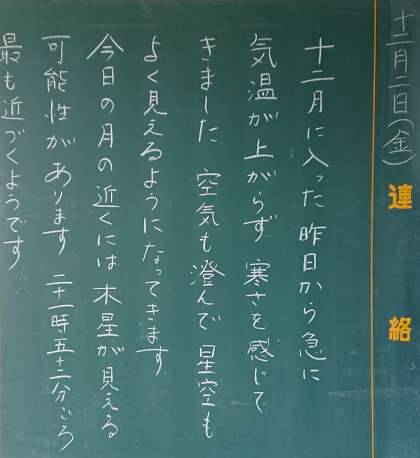 十二月二日(金)
連絡
十二月に入った昨日から急に
気温が上がらず 寒さを感じて
きました 空気も澄んで 星空も
よく見えるようになってきます
今日の月の近くには木星が見える
可能性があります 二十一時五十二分ごろ
最も近づくようです